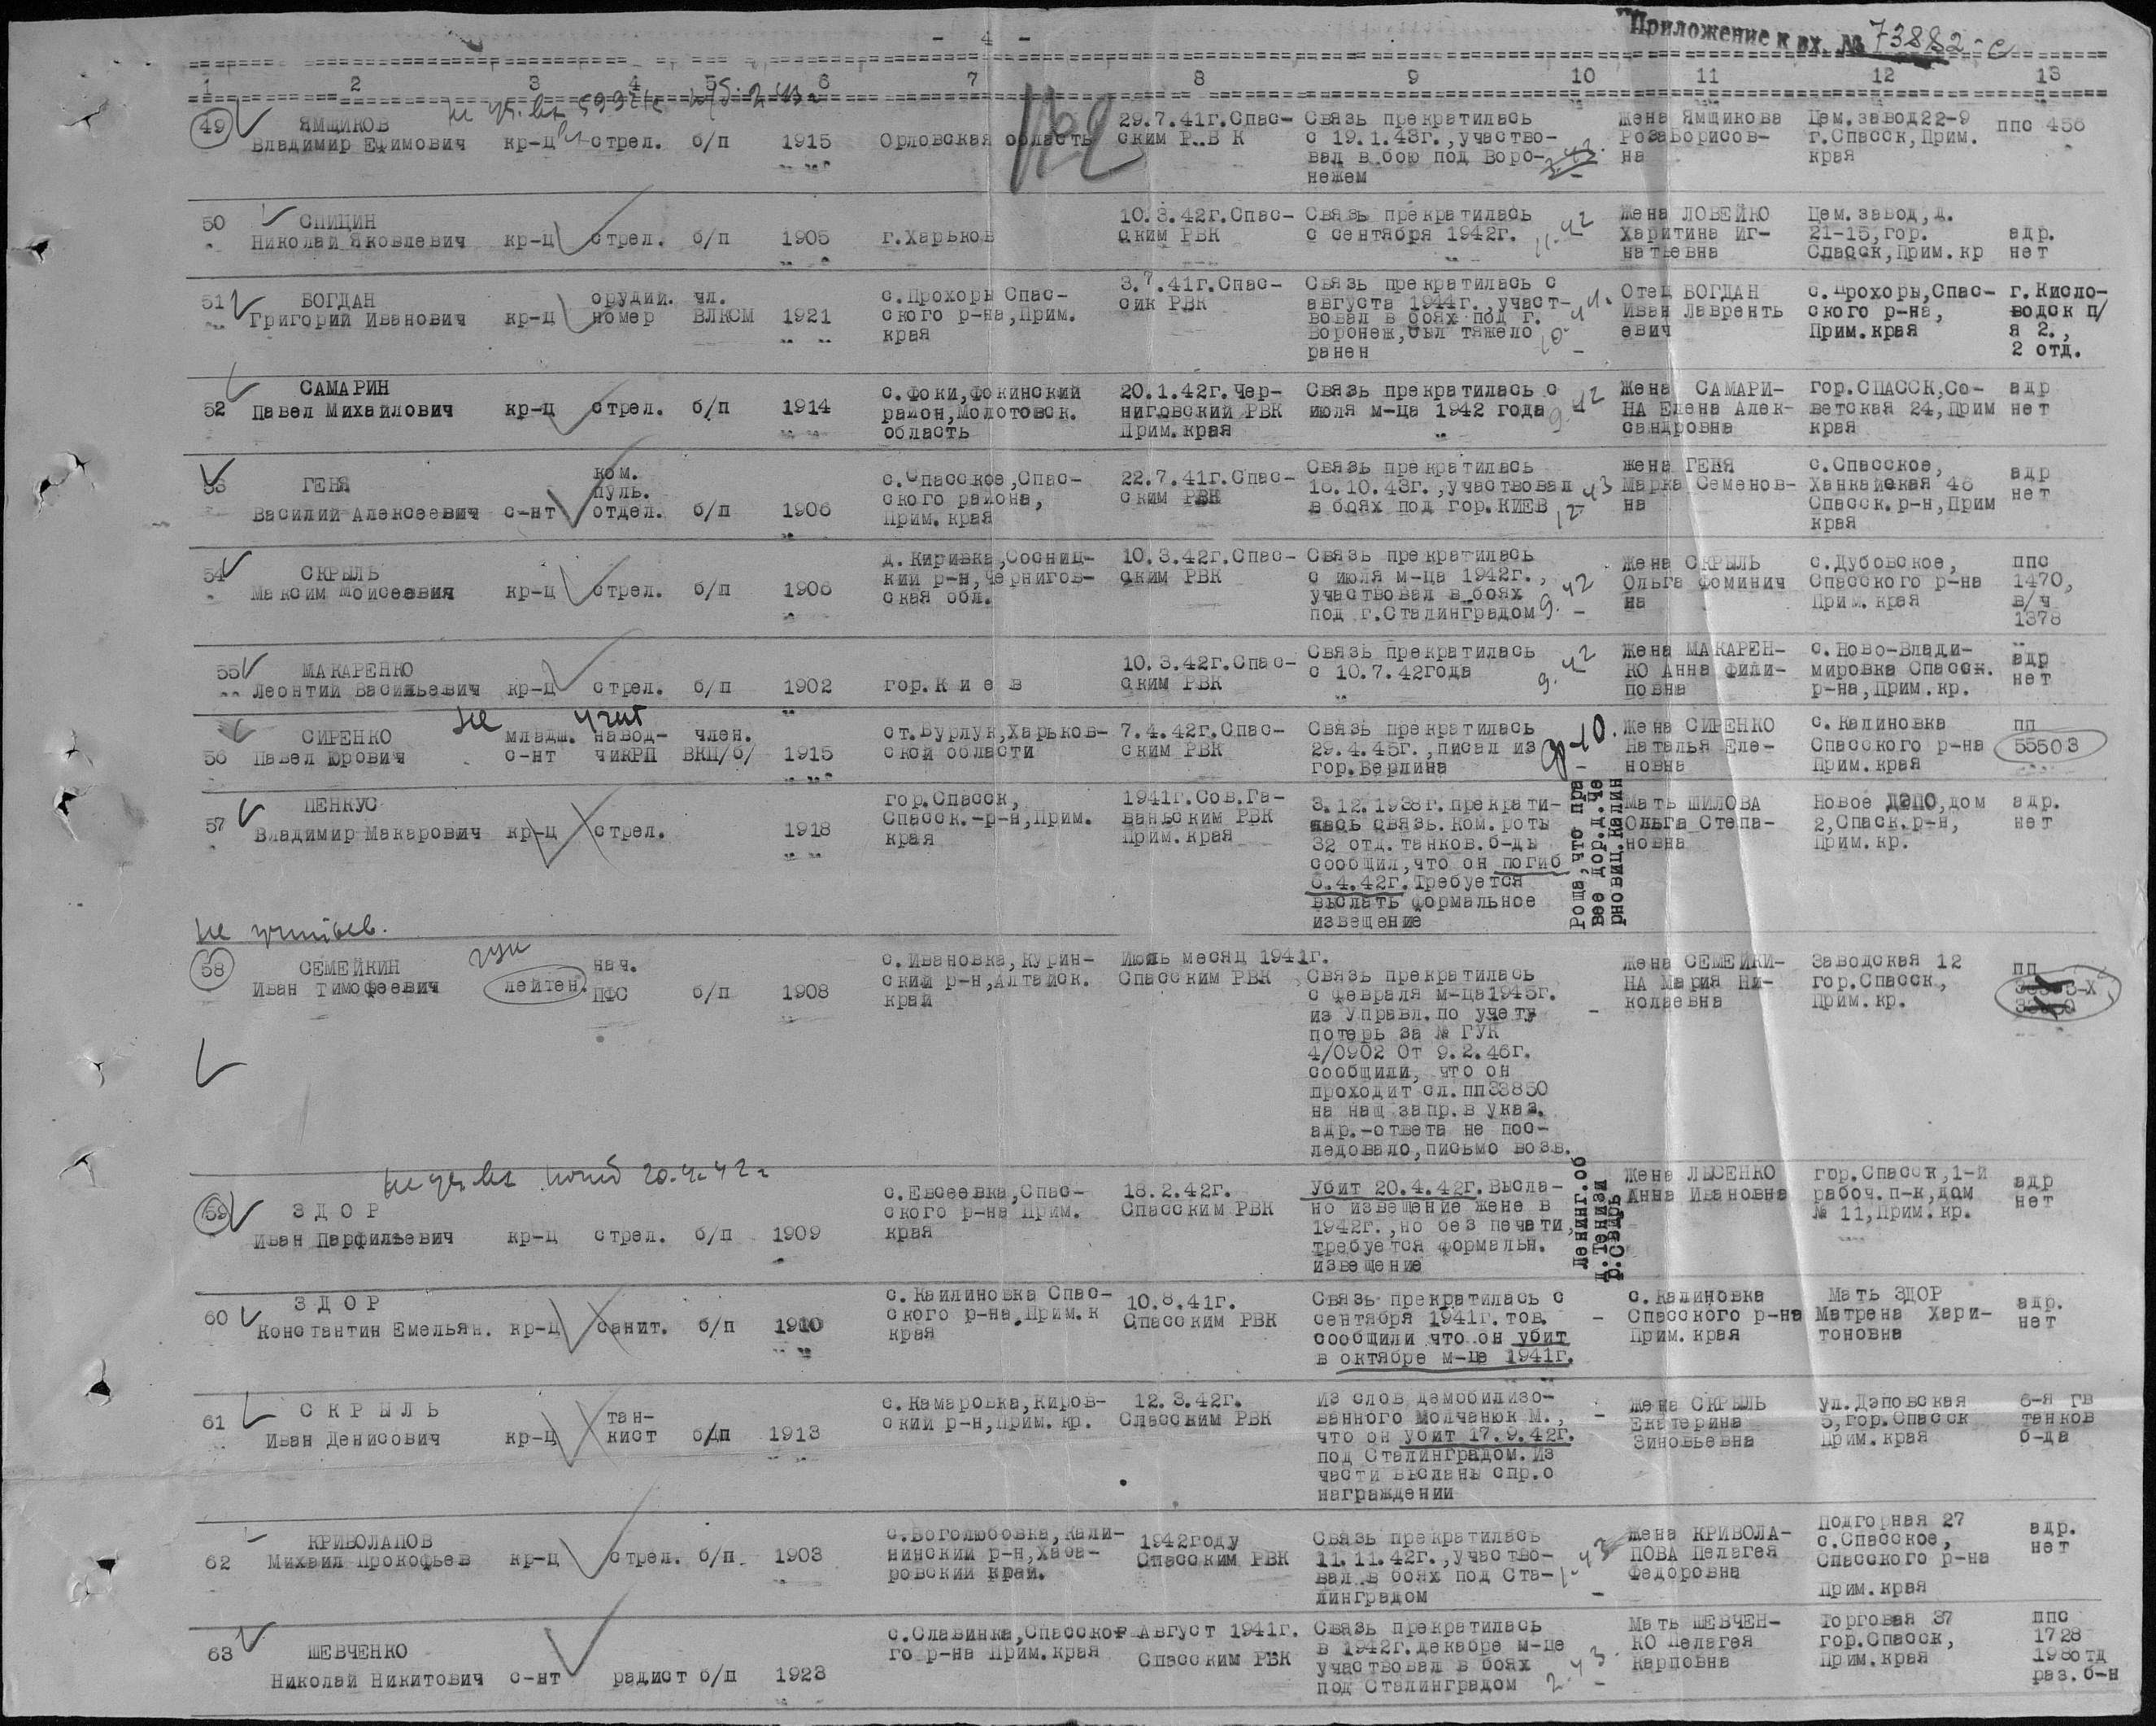 - 4 -
Приложение к вх. № 73882-с
1 2 3 4 5 6 7 8 9 10 11 12 13
49 ЯМЩИКОВ
Владимир Ефимович кр-ц стрел. б/п 1915 Орловская область
29.7.41г.Спас-
ским Р.В К
Связь прекратилась
с 19.1.43г.,участво-
вал в бою под Воро-
нежем
Жена Ямщикова
РозаБорисов-
на
Цем.завод22-9
г.Спасск,Прим.
края
ппс 456
50 СПИЦИН
Николай Яковлевич кр-ц стрел. б/п 1905 г.Харьков
10.3.42г.Спас-
ским РВК
Связь прекратилась
с сентября 1942г.
11.42
Жена ЛОВЕЙКО
Харитина Иг-
натьевна
Цем.завод,д.
21-15,гор.
Спасск,Прим.кр
адр.
нет
51 БОГДАН
Григорий Иванович кр-ц
орудий.
номер
чл.
ВЛКСМ
1921
с.Прохоры Спас-
ского р-на,Прим.
края
3.7.41г.Спас-
ский РВК
Связь прекратилась с
августа 1944г.,участ-
вовал в боях под г.
Воронеж,был тяжело
ранен
10.44.
Отец БОГДАН
Иван Лаврентъ
евич
с.Прохоры,Спас-
ского р-на,
Прим.края
г.Кисло-
водск п/
я 2.,
2 отд.
52 САМАРИН
Павел Михайлович кр-ц стрел. б/п 1914
с.Фоки,Фокинский
район,Молотовск.
область
20.1.42г.Чер-
ниговский РВК
Прим.края
Связь прекратилась с
июля м-ца 1942 года
9.42
Жена САМАРИ-
НА Елена Алек-
сандровна
гор.СПАССК,Со-
ветская 24,Прим
края
адр
нет
53 ГЕНЯ
Василий Алексеевич с-нт
ком.
пуль.
отдел.
б/п 1906
с.Спасское,Спас-
ского района,
Прим.края
22.7.41г.Спас-
ским РВК
Связь прекратилась
16.10.43г.,участвовал
в боях под гор.КИЕВ
12.43
жена ГЕНЯ
Марка Семенов-
на
с.Спасское,
Ханкайская 46
Спасск.р-н,Прим
края
адр
нет
54 СКРЫЛЬ
Максим Моисеевич кр-ц стрел. б/п 1906
д.Киривка,Сосниц-
кий р-н,Чернигов-
ская обл.
10.3.42г.Спас-
ским РВК
Связь прекратилась
с июля м-ца 1942г.,
участвовал в боях
под г.Сталинградом
9.42
Жена СКРЫЛЬ
Ольга Фоминич
на
с.Дубовское,
Спасского р-на
Прим.края
ппс
1470,
в/ч
1378
55 МАКАРЕНКО
Леонтий Васильевич кр-ц стрел. б/п 1902 гор.К и е в
10.3.42г.Спас-
ским РВК
Связь прекратилась
с 10.7.42года
9.42
Жена МАКАРЕН-
КО Анна Фили-
повна
с.Ново-Влади-
мировка Спасск.
р-на,Прим.кр.
адр
нет
56 СИРЕНКО
Павел Юрович
младш.
с-нт
навод-
чикРП
член.
ВКП/б/
1915
ст.Бурлук,Харьков-
ской области
7.4.42г.Спас-
ским РВК
Связь прекратилась
29.4.45г.,писал из
гор.Берлина
Жена СИРЕНКО
Наталья Еле-
новна
с. Калиновка
Спасского р-на
Прим.края
пп
55503
57 ПЕНКУС
Владимир Макарович кр-ц стрел. 1918
гор.Спасск,
Спасск.-р-н,Прим.
края
1941г.Сов.Га-
ваньским РВК
Прим.края
3.12.1938г.прекрати-
лась связь.Ком.роты
32 отд.танков.б-ды
сообщил,что он погиб
6.4.42г.Требуется
выслать формальное
извещение
Роща,что пра
вее дор.д.Че
рновиц.Калин
Мать ШИЛОВА
Ольга Степа-
новна
Новое ДЭПО,дом
2,Спаск.р-н,
Прим.кр.
адр.
нет
не учитыв.
58 СЕМЕЙКИН
Иван Тимофеевич
гук
лейтен.
нач.
ПФС
б/п 1908
с.Ивановка,Курин-
ский р-н,Алтайск.
край
Июль месяц 1941г.
Спасским РВК
Связь прекратилась
с февраля м-ца1945г.
из Управл.по учету
потерь за № ГУК
4/0902 От 9.2.46г.
сообщили, что он
проходит сл.пп33850
на наш запр.в указ.
адр.-ответа не пос-
ледовало,письмо возв.
Жена СЕМЕЙКИ-
НА Мария Ни-
колаевна
Заводская 12
гор.Спасск,
Прим.кр.
пп
59 З Д О Р
Иван Парфильевич кр-ц стрел. б/п 1909
с.Евсеевка,Спас-
ского р-на Прим.
края
18.2.42г.
Спасским РВК
Убит 20.4.42г.Высла-
но извещение жене в
1942г.,но без печати,
требуется формальн.
извещение
Ленинг.об
д.Тенизи
р.Свирь
Жена ЛЫСЕНКО
Анна Ивановна
гор.Спасск,1-й
рабоч.п-к,дом
№ 11,Прим.кр.
адр
нет
60 З Д О Р
Константин Емельян. кр-ц санит. б/п 1910
с.Каилиновка Спас-
ского р-на,Прим.к
края
10.8.41г.
Спасским РВК
Связь прекратилась с
сентября 1941г.тов.
сообщили что он убит
в октябре м-це 1941г.
с.Калиновка
Спасского р-на
Прим.края
Мать ЗДОР
Матрена Хари-
тоновна
адр.
нет
61 С К Р Ы Л Ь
Иван Денисович кр-ц
тан-
кист
б/п 1913
с.Камаровка,Киров-
ский р-н,Прим.кр.
12.3.42г.
Спасским РВК
Из слов демобилизо-
ванного Молчанюк М.,
что он убит 17.9.42г.
под Сталинградом.Из
части высланы спр.о
награждении
Жена СКРЫЛЬ
Екатерина
Зиновьевна
ул.Дэповская
5,гор.Спасск
Прим.края
6-я гв
танков
б-да
62 КРИВОЛАПОВ
Михаил Прокофьев кр-ц стрел. б/п 1903
с.Боголюбовка,Кали-
нинский р-н,Хаба-
ровский край.
1942году
Спасским РВК
Связь прекратилась
11.11.42г.,участво-
вал в боях под Ста-
линградом
1.43
Жена КРИВОЛА-
ПОВА Пелагея
Федоровна
Подгорная 27
с.Спасское,
Спасского р-на
Прим.края
адр.
нет
63 ШЕВЧЕНКО
Николай Никитович с-нт радист б/п 1923
с.Славинка,Спасског
го р-на Прим.края
Август 1941г.
Спасским РВК
Связь прекратилась
в 1942г.декабре м-це
участвовал в боях
под Сталинградом
2.43.
Мать ШЕВЧЕН-
КО Пелагея
Карповна
Торговая 37
гор.Спасск,
Прим.края
ппс
1728
198отд
раз.б-н